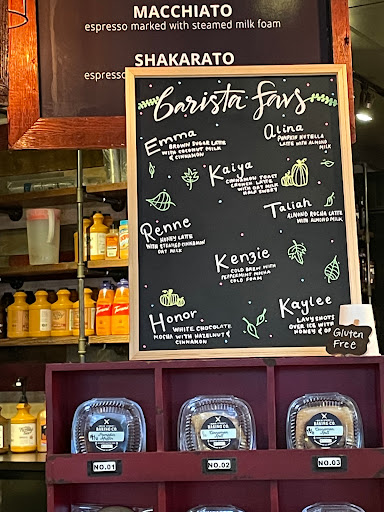 MACCHIATO
espresso marked with steamed milk foam
SHAKARATO
espresso
barista favs
Emma
BROWN SUGAR LATTE
WITH COCONUT MILK
& CINNAMON
Alina
PUMPKIN NUTELLA
LATTE WITH ALMOND
MILK
Kaiya
CINNAMON TOAST
CRUNCH LATTE
WITH OAT MILK
HALF SWEET
Taliah
ALMOND ROCHA LATTE
WITH ALMOND MILK
Renne
HONEY LATTE
WITH STEAMED CINNAMON
OAT MILK
Kenzie
COLD BREW WITH
PEPPERMINT MOCHA
COLD FOAM
Honor
WHITE CHOCOLATE
MOCHA WITH HAZELNUT &
CINNAMON
Kaylee
LAVY SHOTS
OVER ICE WITH
HONEY & O
Gluten
Free
BAKING CO.
BAKING CO.
BAKING CO.
NO.01
NO.02
NO.03